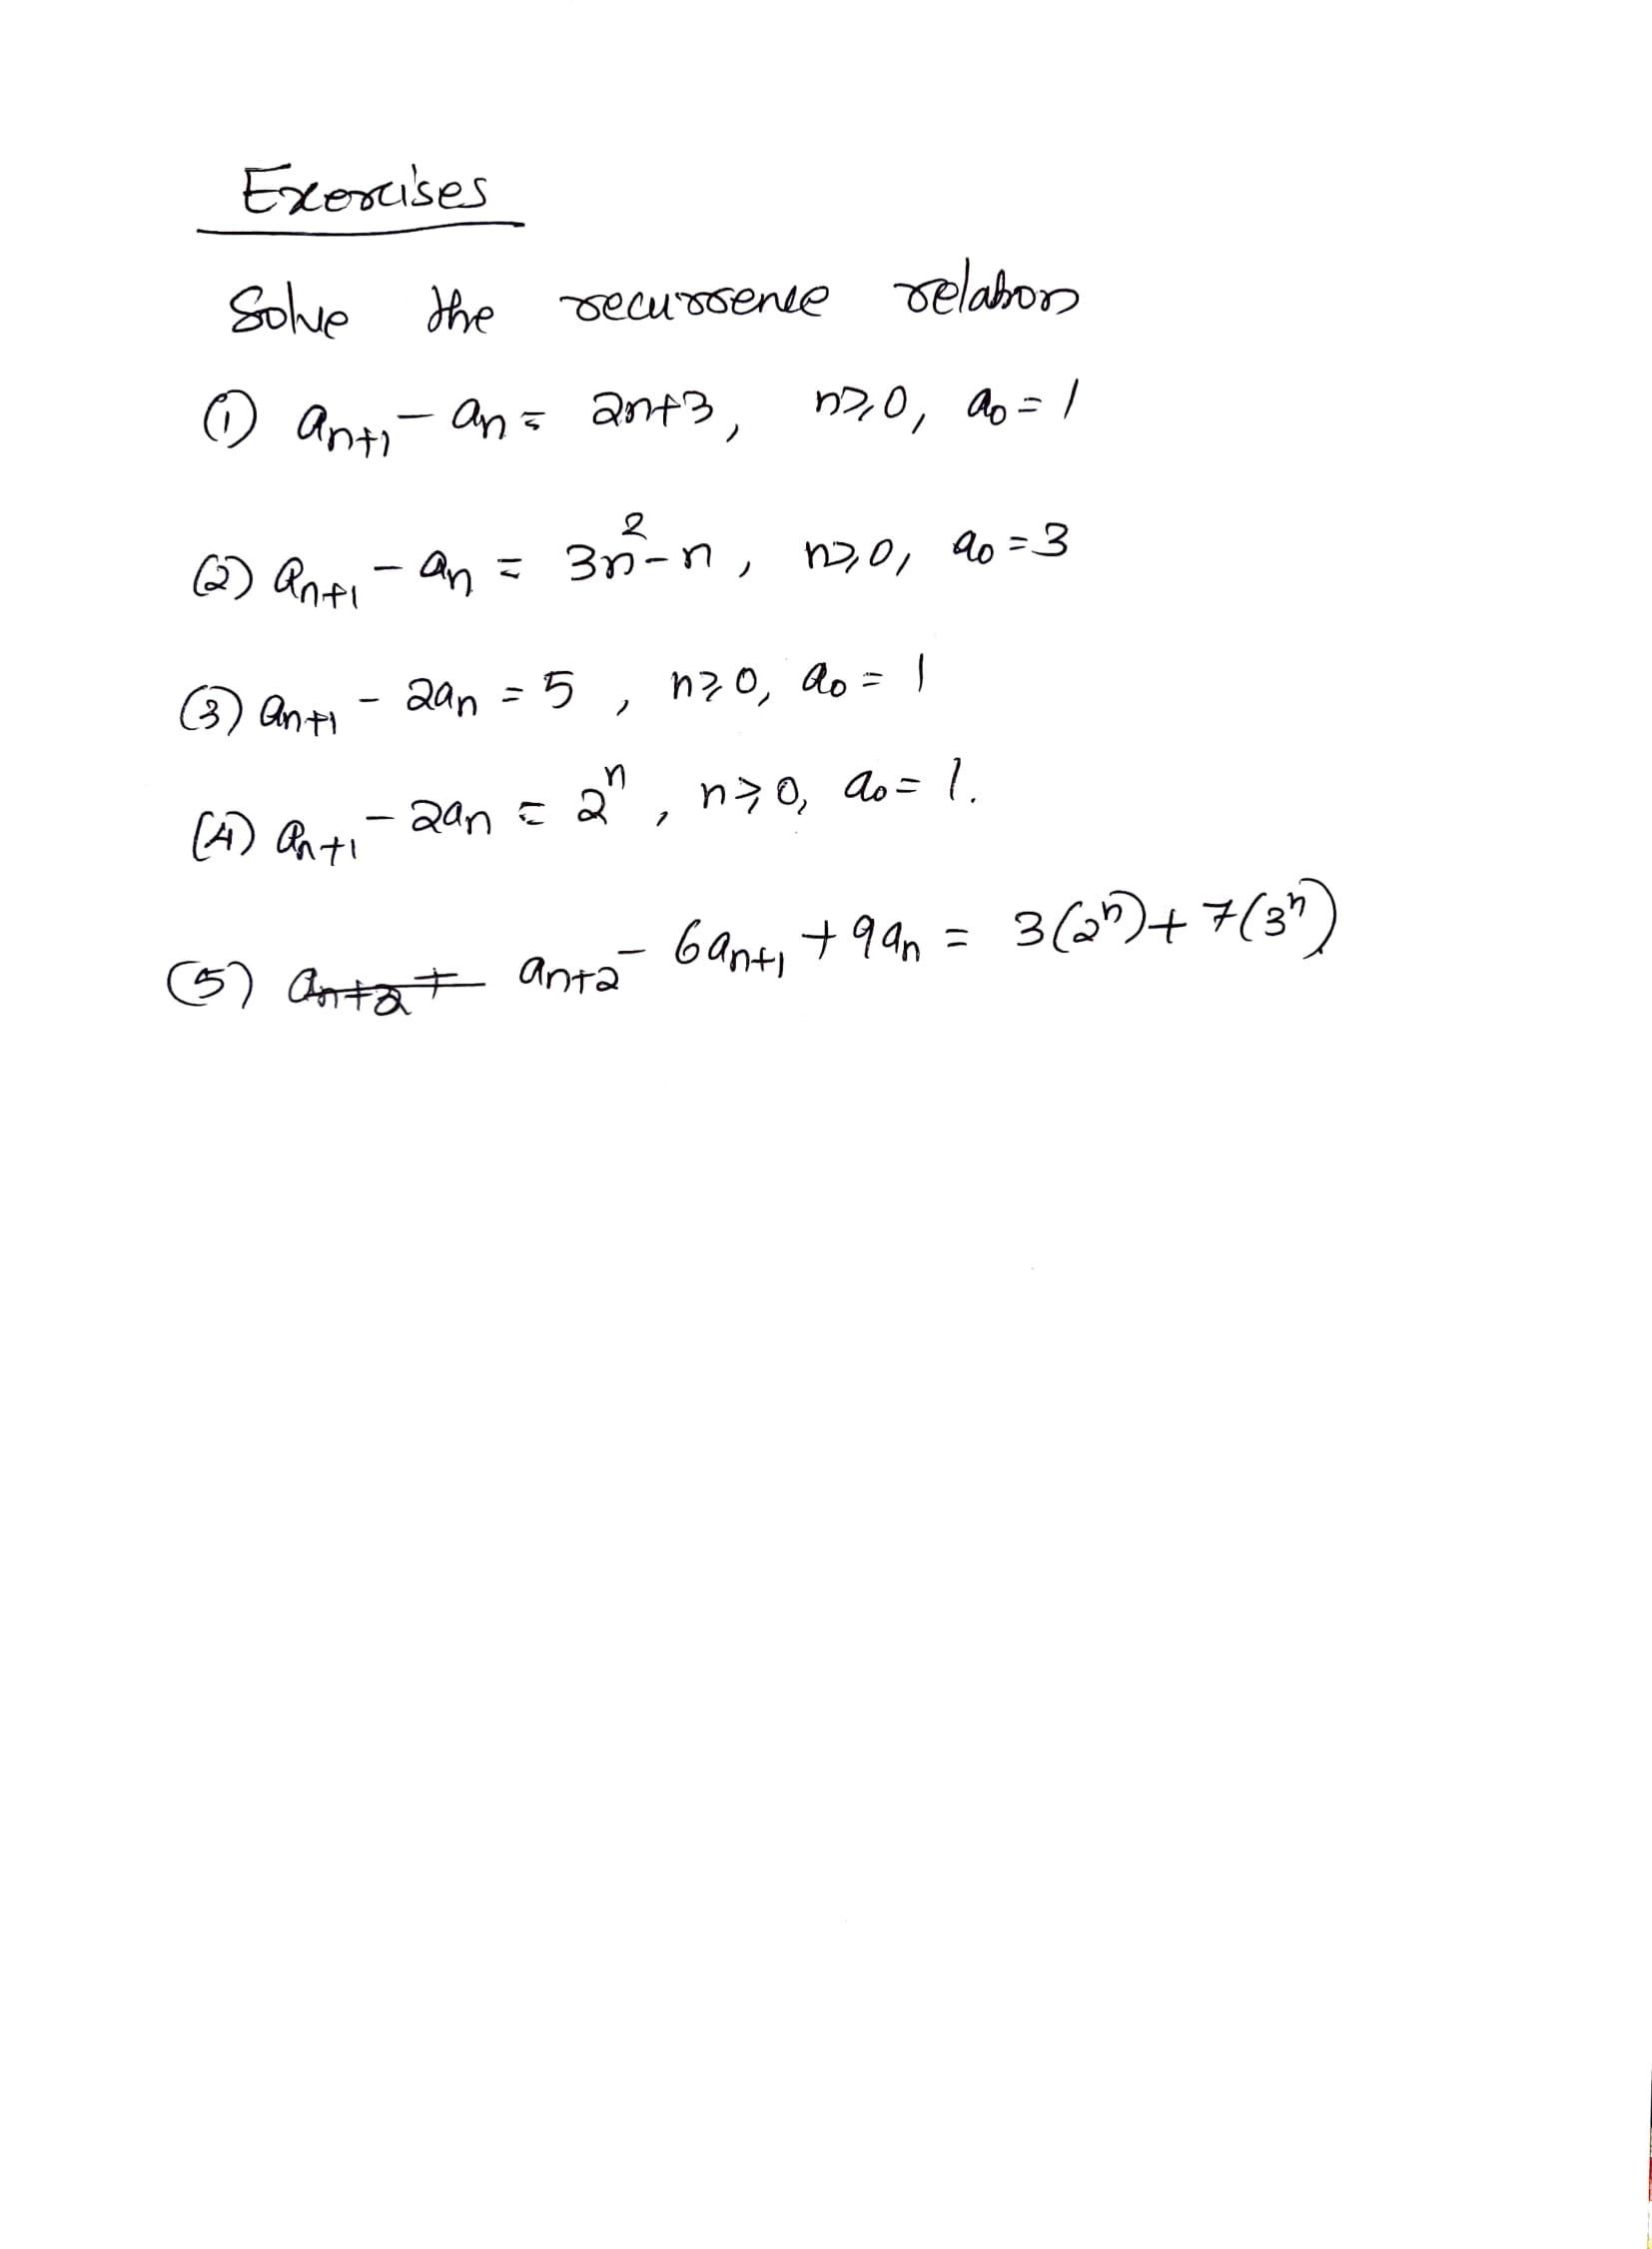 Exercises
Solve the recurrence relation
(1) aₙ₊₁ - aₙ = 2n+3, n⩾0, a₀ = 1
(2) aₙ₊₁ - aₙ = 3n² - n, n⩾0, a₀ = 3
(3) aₙ₊₁ - 2aₙ = 5, n⩾0, a₀ = 1
(4) aₙ₊₁ - 2aₙ = 2ⁿ, n⩾0, a₀ = 1.
(5) ~~aₙ₊₂ +~~ aₙ₊₂ - 6aₙ₊₁ + 9aₙ = 3(2ⁿ) + 7(3ⁿ)